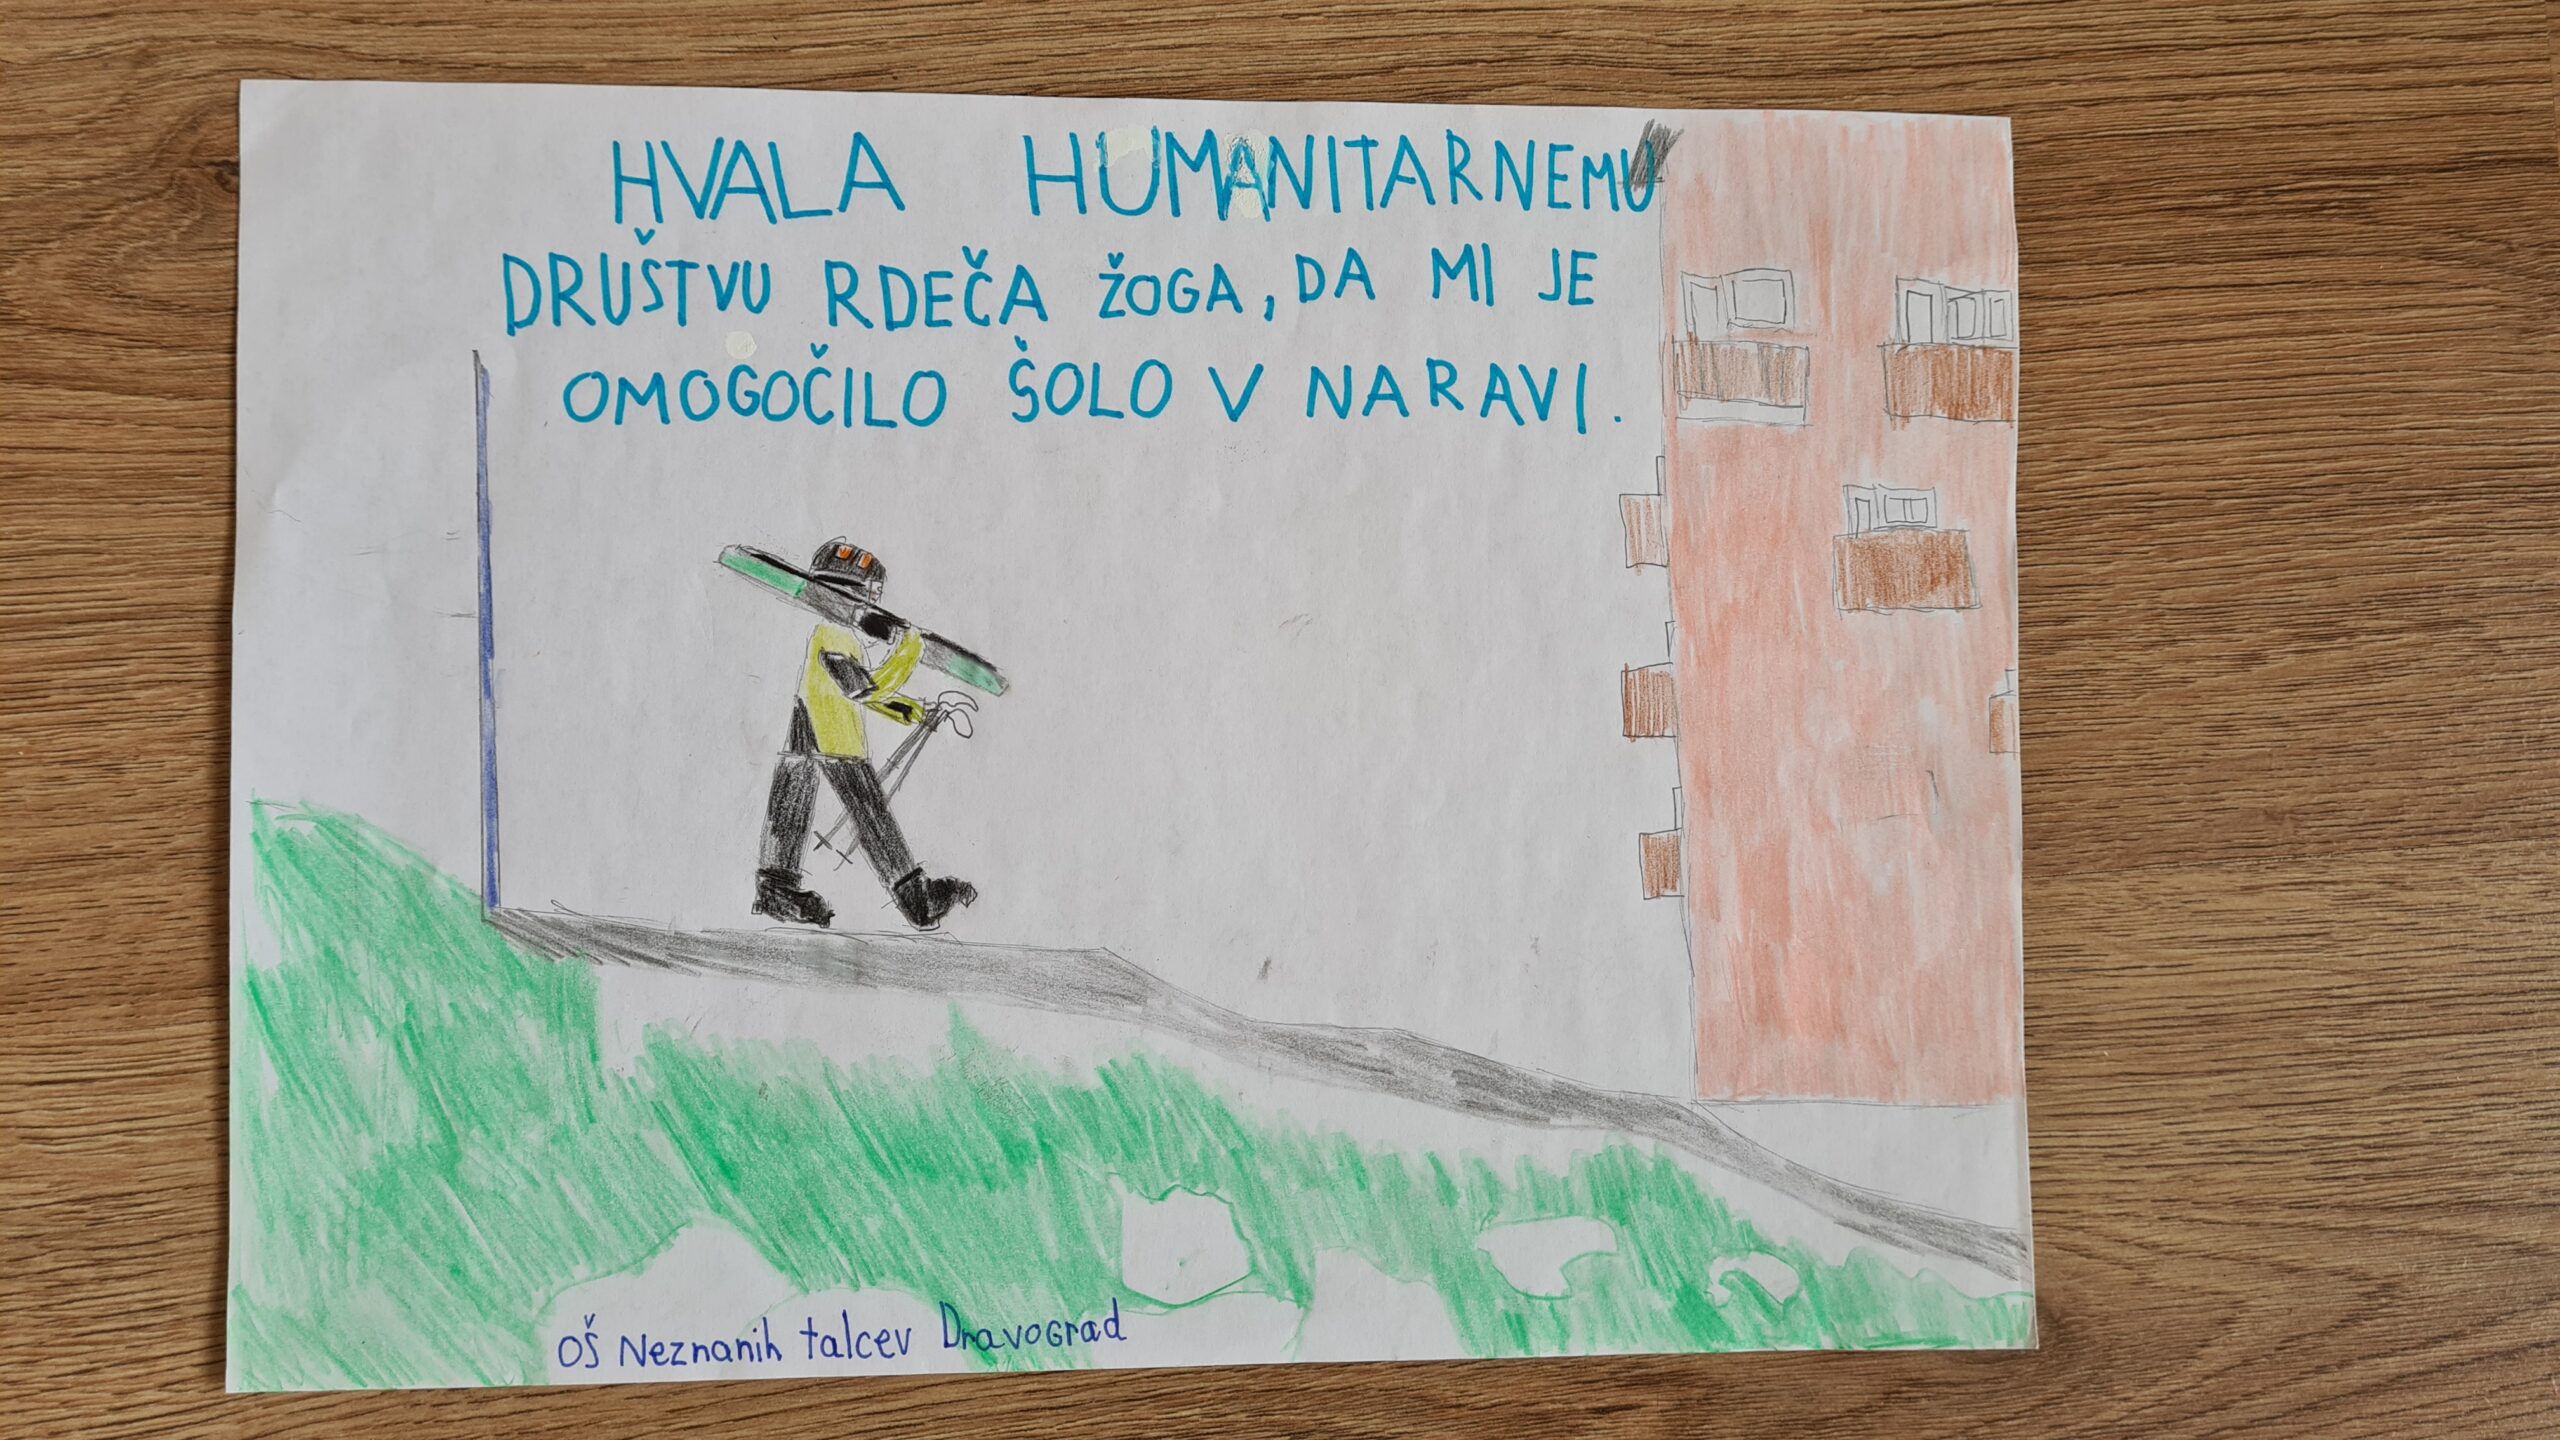 HVALA HUMANITARNEMU
DRUŠTVU RDEČA ŽOGA, DA MI JE
OMOGOČILO ŠOLO V NARAVI.
OŠ Neznanih talcev Dravograd